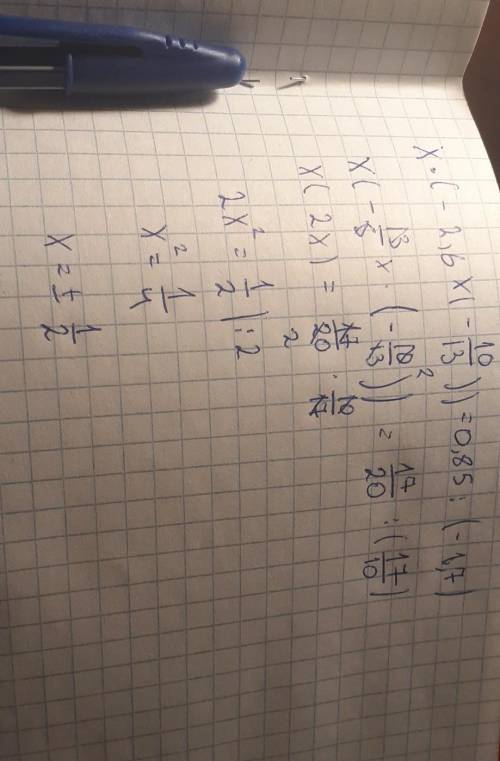 x·(-2,6x(-10/13)) = 0,85 : (-1,7)
x(-13/5 x · (-10/13)) = 17/20 : (17/10)
x(2x) = 17/20 · 10/17
2x² = 1/2 | : 2
x² = 1/4
x = ± 1/2